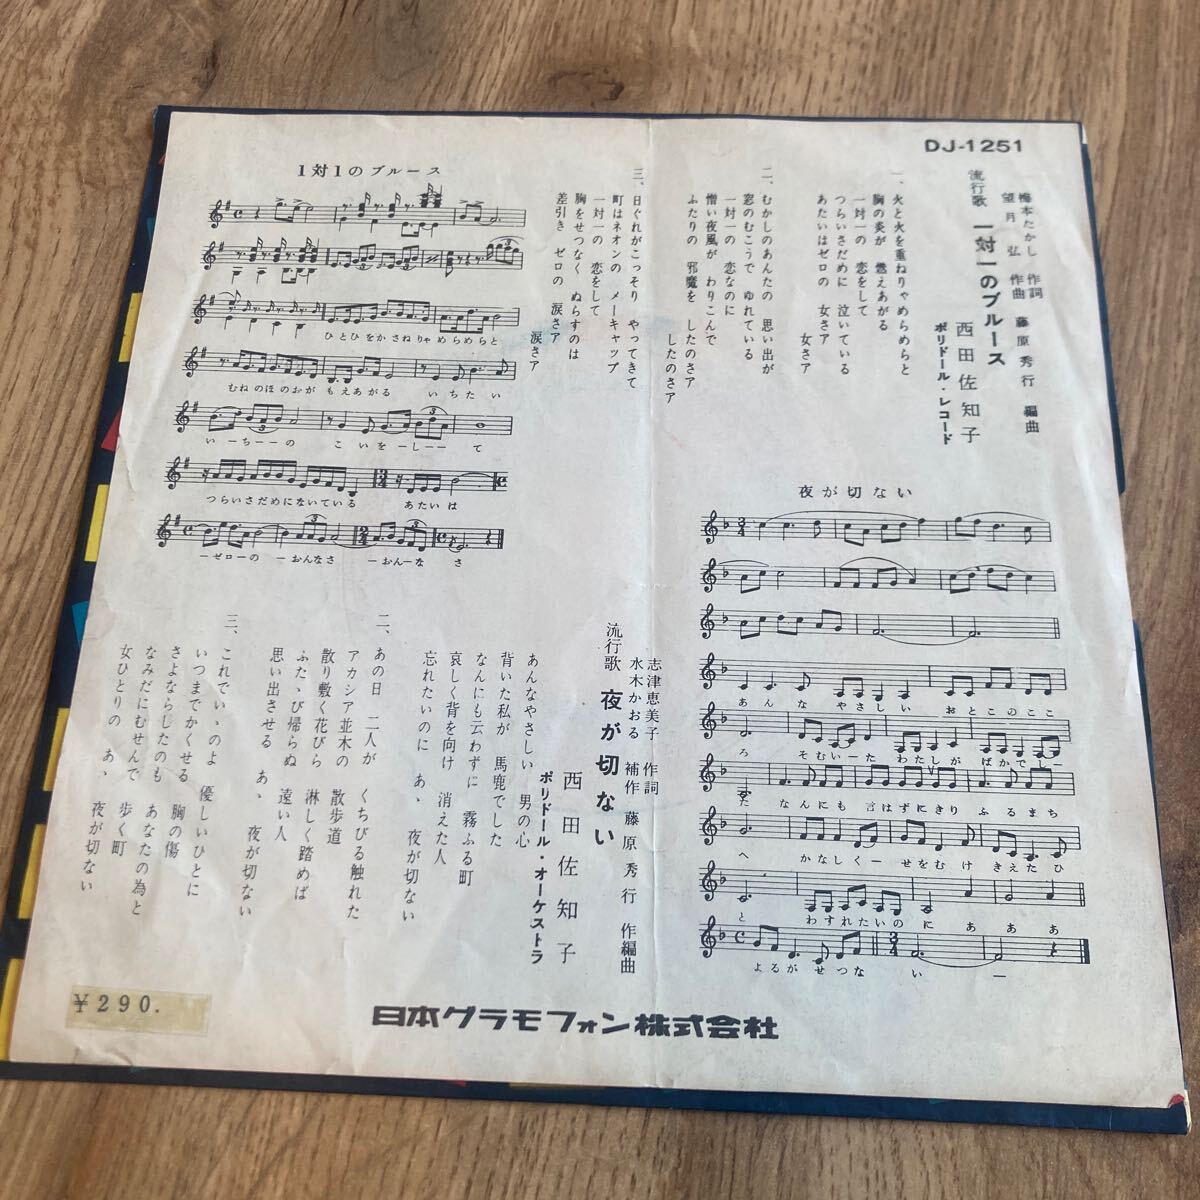 DJ-1251
橋本たかし 作詞
望月 弘 作曲 藤原秀行 編曲
流行歌 一対一のブルース 西田佐知子
ポリドール・レコード
一、火と火を重ねりゃめらめらと
胸の炎が 燃えあがる
一対一の 恋をして
つらいさだめに 泣いている
あたいはゼロの 女さア
女さア
二、むかしのあんたの 思い出が
窓のむこうで ゆれている
一対一の 恋なのに
憎い夜風が わりこんで
ふたりの 邪魔を したのさア
したのさア
三、日ぐれがこっそり やってきて
町はネオンの メーキャップ
一対一の 恋をして
胸をせつなく ぬらすのは
差引き ゼロの 涙さア
涙さア
1対1のブルース
ひとひをかさねりゃめらめらと
むねのほのおが もえあがる いちたい
いーちーーの こいをーしーーて
つらいさだめにないている あたいは
ーゼローの ーおんなさ ーおんーな さ
夜が切ない
あんな やさしい おとこのここ
ろ そむいーた わたしが ばかでしー
た なんにも 言はずにきり ふるまち
へ かなしくーせをむけ きえたひ
と わすれたいのに あああ
よるがせつな い ー
志津恵美子 作詞
水木かおる 補作 藤原秀行 作編曲
流行歌 夜が切ない 西田佐知子
ポリドール・オーケストラ
あんなやさしい 男の心
背いた私が 馬鹿でした
なんにも云わずに 霧ふる町
哀しく背を向け 消えた人
忘れたいのに あゝ 夜が切ない
二、あの日 二人が くちびる触れた
アカシア並木の 散歩道
散り敷く花びら 淋しく踏めば
ふたゝび帰らぬ 遠い人
思い出させる あゝ 夜が切ない
三、これでいゝのよ 優しいひとに
いつまでかくせる 胸の傷
さよならしたのも あなたの為と
なみだにむせんで 歩く町
女ひとりの あゝ 夜が切ない
¥290.
日本グラモフォン株式会社